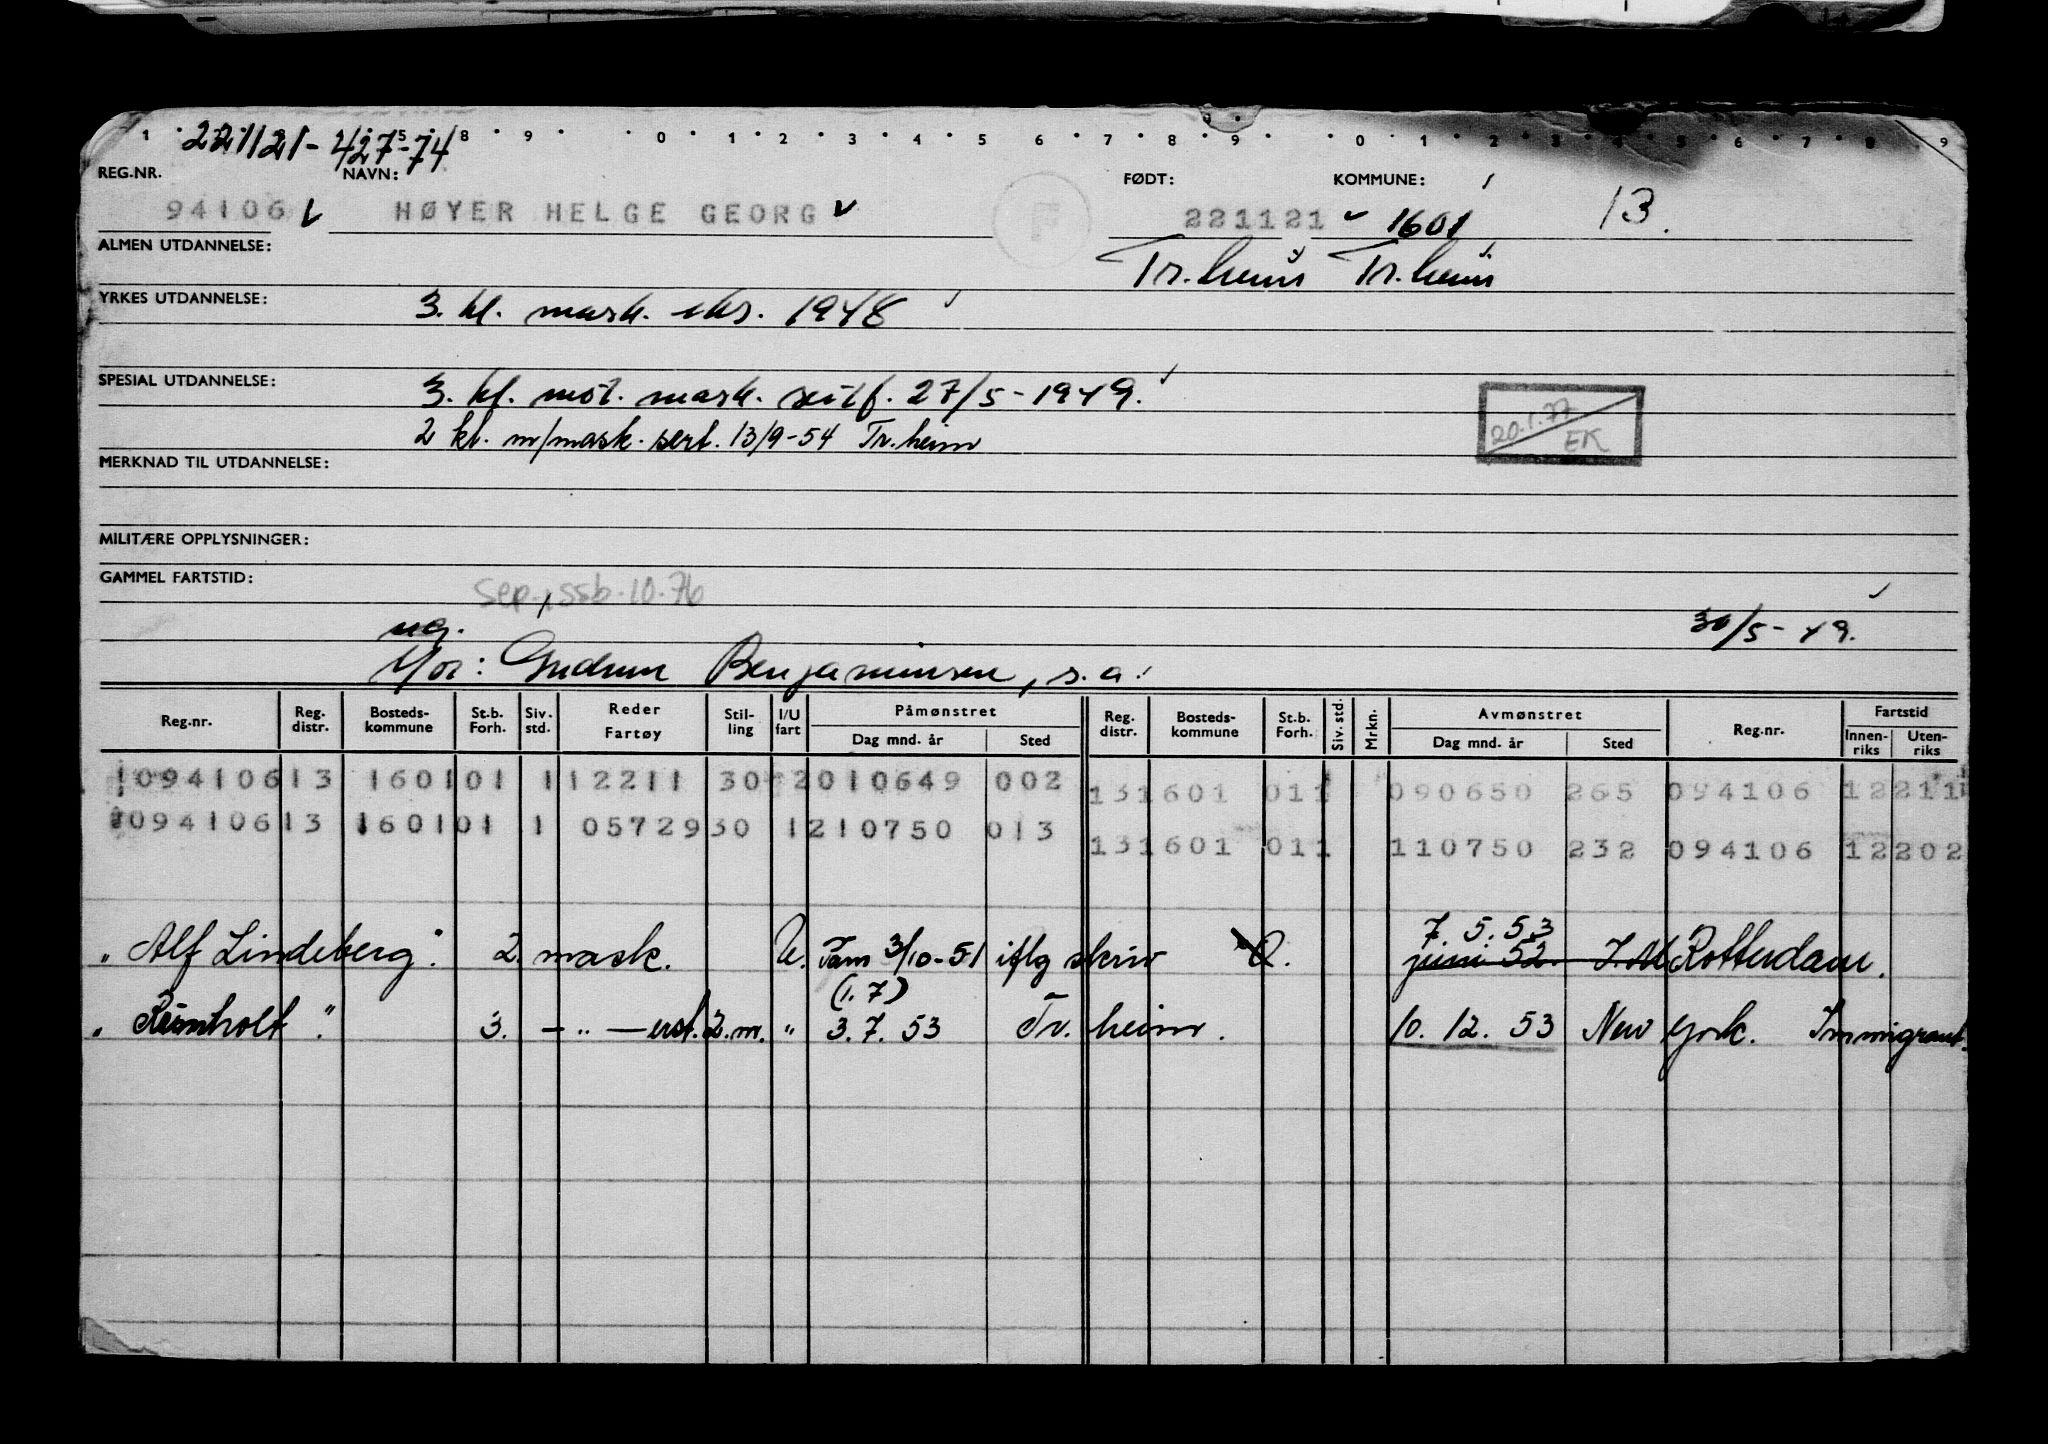 1 5 8 9 0 1 2 3 4 5 6 7 8 9 0 1 2 3 4 5 6 7 8 9
221121-427-74
REG.NR. NAVN: FØDT: KOMMUNE:
94106 HØYER HELGE GEORG F 221121 1601 13.
ALMEN UTDANNELSE: Tr.heim Tr.heim
YRKES UTDANNELSE: 3. kl. mask. eks. 1948
SPESIAL UTDANNELSE: 3. kl. mot. mask. sertf. 27/5-1949.
2 kl. m/mask. sert. 13/9-54 Tr.heim
20.1.77 EK
MERKNAD TIL UTDANNELSE:
MILITÆRE OPPLYSNINGER:
GAMMEL FARTSTID:
sep., ssb. 10.76
ug. 30/5-49.
Mor: Gudrun Benjaminsen, s.a.
Reg.nr. Reg. distr. Bosteds-kommune St.b. Forh. Siv. std. Reder Fartøy Stil-ling I/U fart Påmønstret Dag mnd. år Sted Reg. distr. Bosteds-kommune St.b. Forh. Siv. std. Mrkn. Avmønstret Dag mnd. år Sted Reg.nr. Fartstid Innen-riks Uten-riks
109410613 160101 112211 30 2010649 002 131601 011 090650 265 094106 12211
09410613 160101 1 05729 30 1210750 013 131601 011 110750 232 094106 12202
7. 5. 53
"Alf Lindeberg". 2. mask. U. Fam 3/10-51 iflg skriv O. juni 52. I.M. Rotterdam.
(1.7)
"Reinholt". 3. - " - erst. 2. m. " 3. 7. 53 Tr. heim. 10. 12. 53 New York. Immigrant.